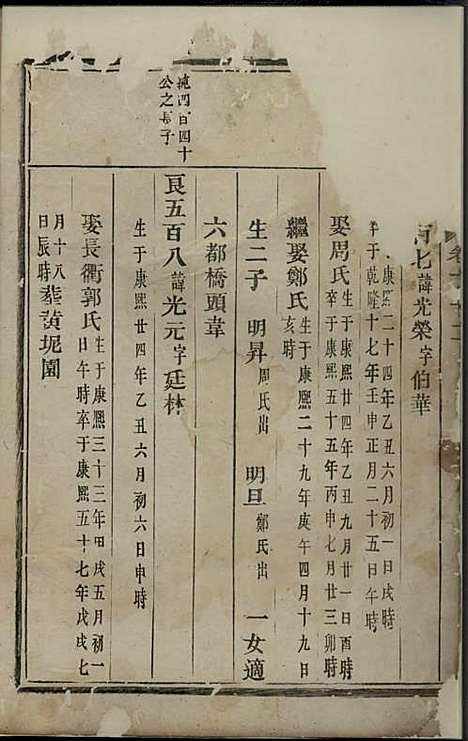 卷
諱光榮字伯華
康熙二十四年乙丑六月初一日戌時
于乾隆十七年壬申正月二十五日午時
娶周氏生于康熙廿四年乙丑九月廿一日酉時
卒于康熙五十五年丙申七月廿三卯時
繼娶鄭氏生于康熙二十九年庚午四月十九日
亥時
生二子 明昇周氏出 明旦鄭氏出 一女適
六都橋頭韋
純四百四十
公之長子
良五百八諱光元字廷林
生于康熙廿四年乙丑六月初六日申時
娶長衢郭氏生于康熙三十三年甲戌五月初一
日午時卒于康熙五十七年戊戌七
月十八
日辰時
葬黃坭園